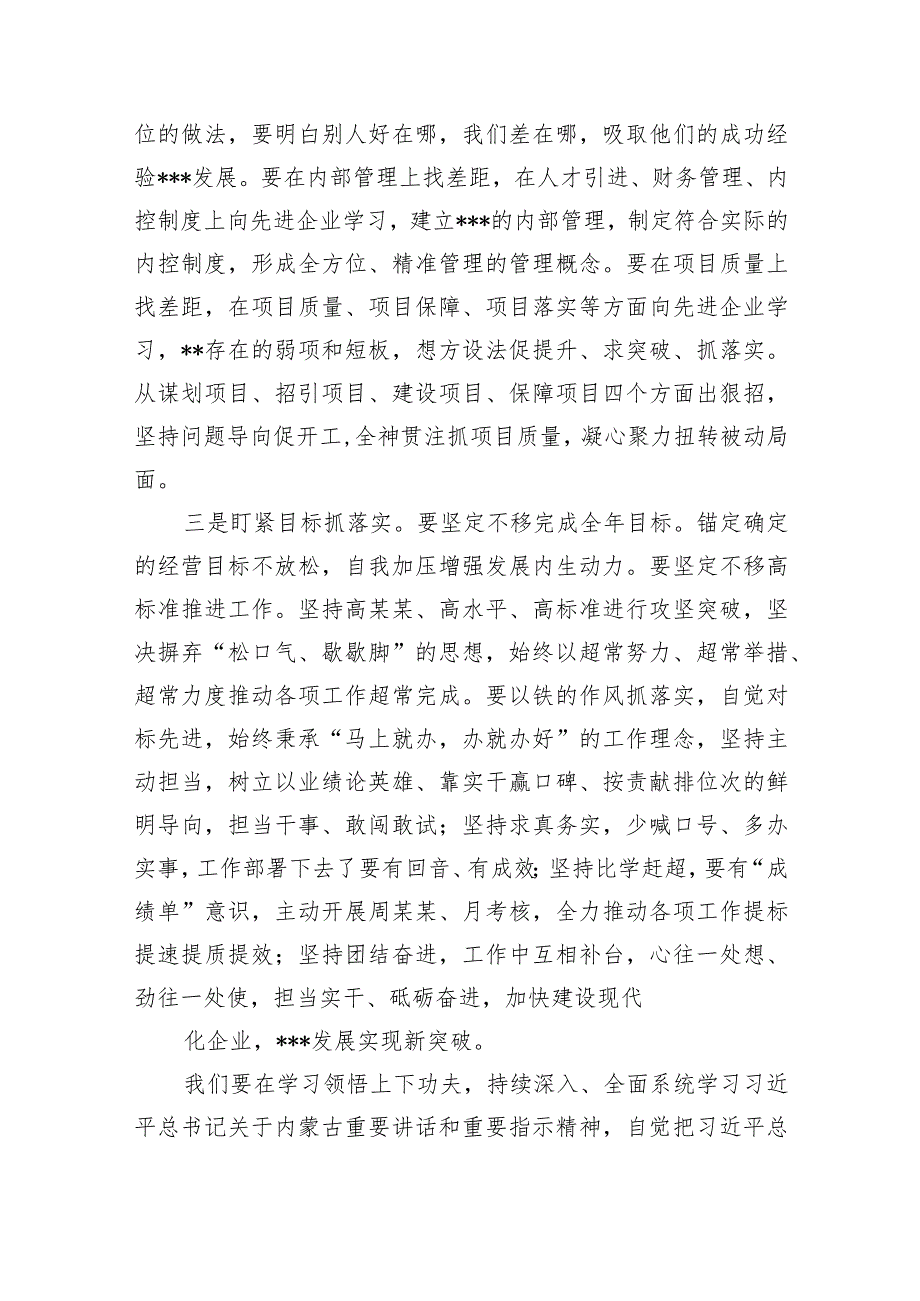 位的做法，要明白别人好在哪，我们差在哪，吸取他们的成功经
验***发展。要在内部管理上找差距，在人才引进、财务管理、内
控制度上向先进企业学习，建立***的内部管理，制定符合实际的
内控制度，形成全方位、精准管理的管理概念。要在项目质量上
找差距，在项目质量、项目保障、项目落实等方面向先进企业学
习，**存在的弱项和短板，想方设法促提升、求突破、抓落实。
从谋划项目、招引项目、建设项目、保障项目四个方面出狠招，
坚持问题导向促开工,全神贯注抓项目质量，凝心聚力扭转被动局
面。
三是盯紧目标抓落实。要坚定不移完成全年目标。锚定确定
的经营目标不放松，自我加压增强发展内生动力。要坚定不移高
标准推进工作。坚持高某某、高水平、高标准进行攻坚突破，坚
决摒弃“松口气、歇歇脚”的思想，始终以超常努力、超常举措、
超常力度推动各项工作超常完成。要以铁的作风抓落实，自觉对
标先进，始终秉承“马上就办，办就办好”的工作理念，坚持主
动担当，树立以业绩论英雄、靠实干赢口碑、按贡献排位次的鲜
明导向，担当干事、敢闯敢试；坚持求真务实，少喊口号、多办
实事，工作部署下去了要有回音、有成效；坚持比学赶超，要有“成
绩单”意识，主动开展周某某、月考核，全力推动各项工作提标
提速提质提效；坚持团结奋进，工作中互相补台，心往一处想、
劲往一处使，担当实干、砥砺奋进，加快建设现代
化企业，***发展实现新突破。
我们要在学习领悟上下功夫，持续深入、全面系统学习习近
平总书记关于内蒙古重要讲话和重要指示精神，自觉把习近平总